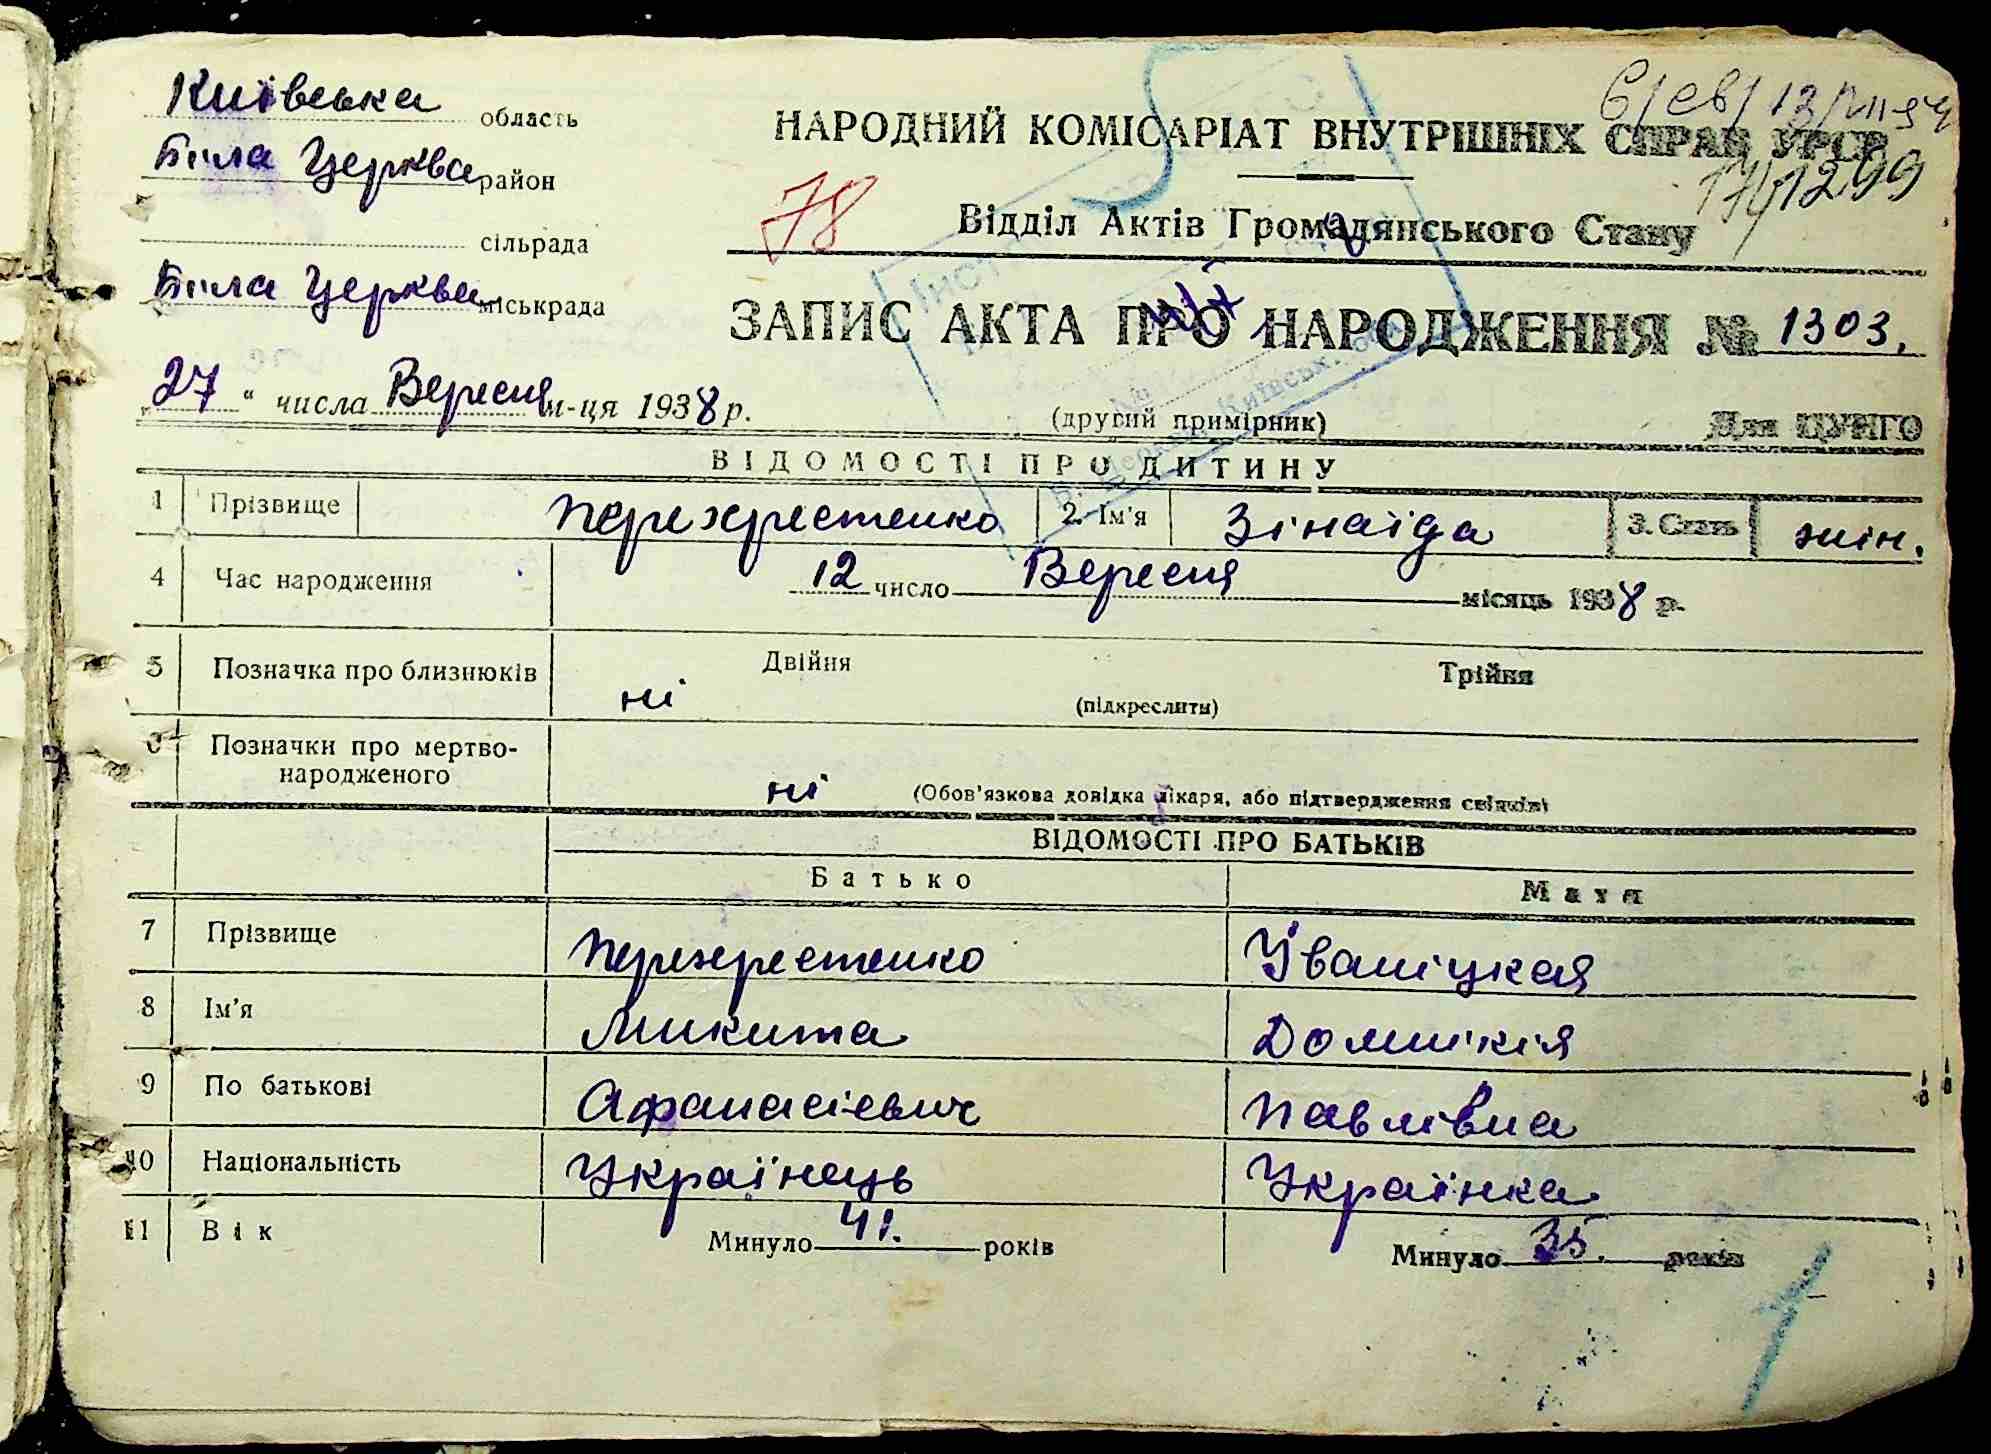 Київська область
Біла Церква район
сільрада
Біла Церква міськрада
НАРОДНИЙ КОМІСАРІАТ ВНУТРІШНІХ СПРАВ УРСР
1299
78
Відділ Актів Громадянського Стану
ЗАПИС АКТА ПРО НАРОДЖЕННЯ № 1303.
„27" числа Вересня м-ця 1938 р.
(другий примірник)
Для ЦУНГО
ВІДОМОСТІ ПРО ДИТИНУ
1 Прізвище Перехрестенко 2. Ім'я Зінаїда 3. Стать жін.
4 Час народження 12 число Вересня місяць 1938 р.
5 Позначка про близнюків ні Двійня Трійня
(підкреслити)
6 Позначки про мертво-
народженого ні (Обов'язкова довідка лікаря, або підтвердження свідків)
ВІДОМОСТІ ПРО БАТЬКІВ
Батько Мати
7 Прізвище Перехрестенко Іваніцкая
8 Ім'я Микита Домнікія
9 По батькові Афанасієвич Павлівна
10 Національність Українець Українка
11 Вік Минуло 41. років Минуло 35. років